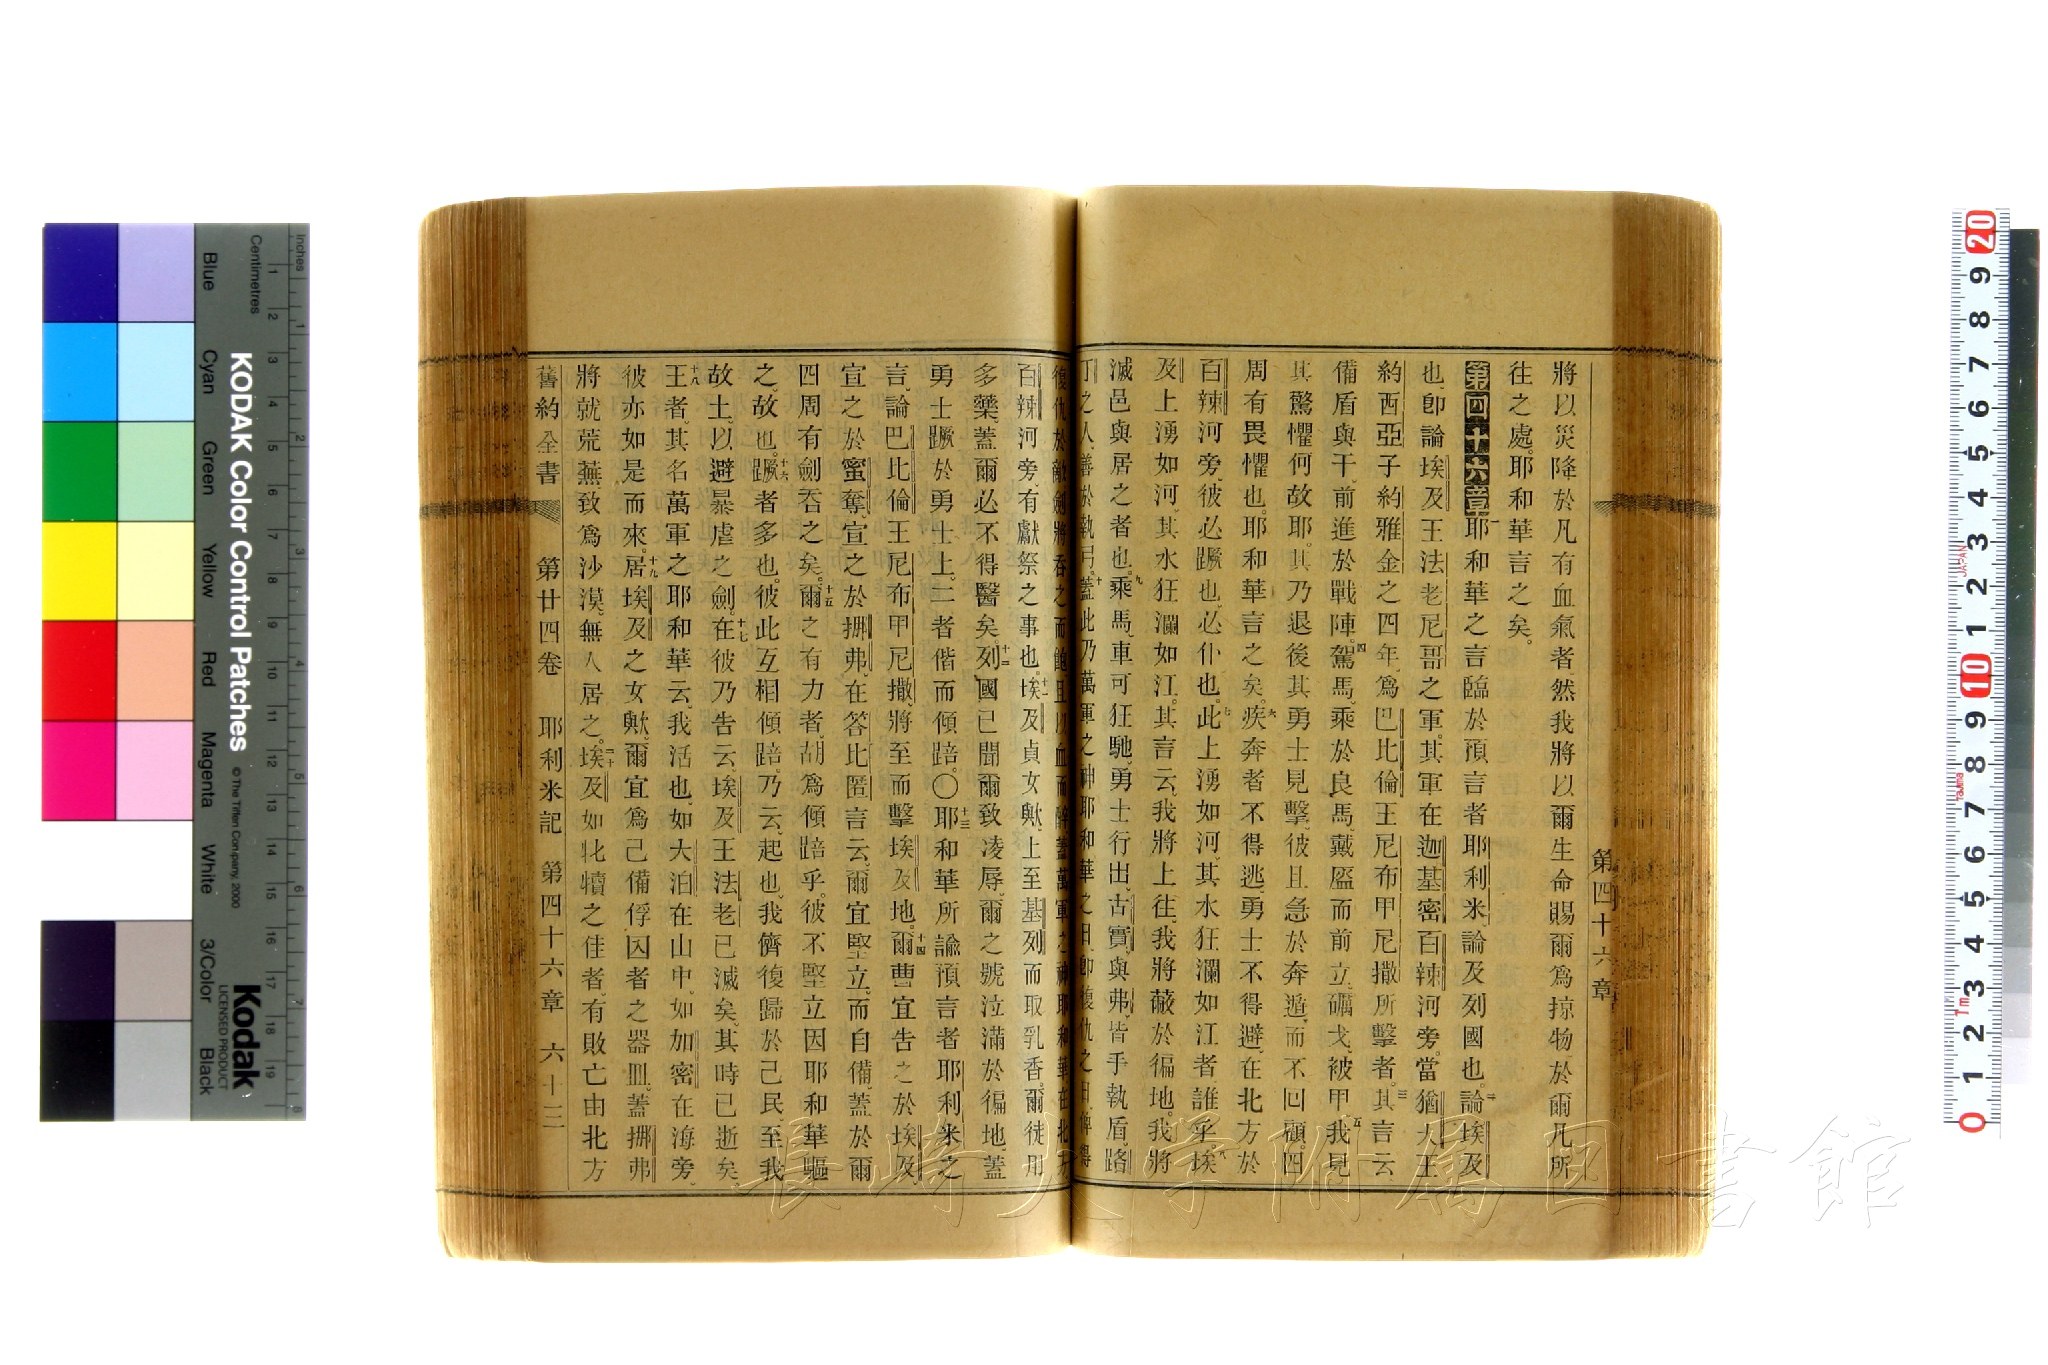 第四十六章
將以災降於凡有血氣者、然我將以爾生命賜爾爲掠物、於爾凡所
往之處、耶和華言之矣。
第四十六章 一耶和華之言臨於預言者耶利米、論及列國也。二論埃及
也、卽論埃及王法老尼哥之軍。其軍在迦基密百辣河旁。當猶大王
約西亞子約雅金之四年、爲巴比倫王尼布甲尼撒所擊者。三其言云、
備盾與干、前進於戰陣。四駕馬、乘於良馬、戴盔而前立、礪戈、被甲。五我見
其驚懼何故耶。其乃退後、其勇士見擊、彼且急於奔遁、而不回顧。四
周有畏懼也。耶和華言之矣。六疾奔者不得逃、勇士不得避、在北方於
百辣河旁、彼必蹶也、必仆也。七此上湧如河、其水狂瀾如江者誰乎。八埃
及上湧如河、其水狂瀾如江。其言云、我將上往、我將蔽於徧地。我將
滅邑與居之者也。九乘馬、車可狂馳、勇士行出、古實與弗皆手執盾、路
丁之人、善於執弓。十蓋此乃萬軍之神耶和華之日、卽復仇之日、俾得
復仇於敵、劍將吞之而飽、且以血而醉、蓋萬軍之神耶和華在北方
百辣河旁、有獻祭之事也。十一埃及貞女歟、上至基列而取乳香。爾徒用
多藥、蓋爾必不得醫矣。十二列國已聞爾致凌辱、爾之號泣滿於徧地、蓋
勇士蹶於勇士上。二者偕而傾踣。〇十三耶和華所諭預言者耶利米之
言、論巴比倫王尼布甲尼撒、將至而擊埃及地。十四爾曹宜告之於埃及、
宣之於蜜奪、宣之於挪弗、在答比匿言云、爾宜堅立、而自備、蓋於爾
四周有劍吞之矣。十五爾之有力者、胡爲傾踣乎。彼不堅立因耶和華驅
之、故也。十六蹶者多也。彼此互相傾踣。乃云、起也、我儕復歸於己民、至我
故土、以避暴虐之劍。十七在彼乃告云、埃及王法老已滅矣、其時已逝矣、
十八王者、其名萬軍之耶和華云、我活也、如大泊在山中、如加密在海旁、
彼亦如是而來。十九居埃及之女歟、爾宜爲己備俘囚者之器皿、蓋挪弗
將就荒蕪、致爲沙漠、無人居之。二十埃及如牝犢之佳者、有敗亡由北方
舊約全書 第廿四卷 耶利米記 第四十六章 六十三
長崎大学附属図書館
KODAK Color Control Patches
© The Tiffen Company, 2000
Kodak
LICENSED PRODUCT
Inches
Centimetres
Blue
Cyan
Green
Yellow
Red
Magenta
White
3/Color
Black
JAPAN